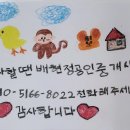 사할땐 배현정공인중개사
10-5166-8022 전화해주세
감사합니다